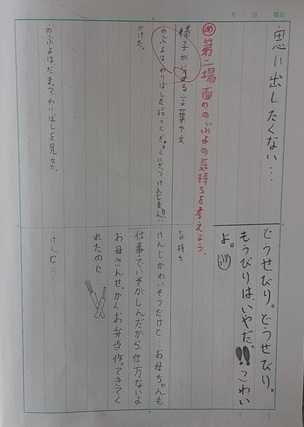 月 日 曜日
思い出したくない…
どうせびり。どうせびり。
もうびりはいやだ、こわい
よ。
め 第二場面ののぶよの気持ちを考えよう。
様子が分かる言葉や文
気持ち
のぶよはわりばしを持って
けんじを追い
かけた。
けんじかわいそうだけど…お母ちゃんも
仕事でいそがしんだから仕方ないよ
お母さんせっかくお弁当作ってきてく
れたのに
のぶよはだまってわりばしを見せた。
けんじ